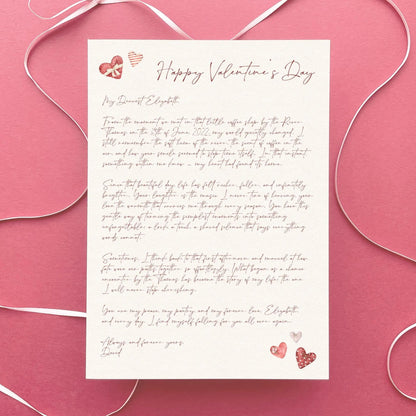 Happy Valentine's Day
My Dearest Elizabeth
From the moment we met in that little coffee shop by the River
Thames on the 15th of June 2022, my world quietly changed. I
still remember the soft hum of the river, the scent of coffee in the
air, and how your smile seemed to stop time itself. In that instant
something within me knew - my heart had found its home.
Since that beautiful day, life has felt richer, fuller, and infinitely
brighter. Your laughter is the music I never tire of hearing, your
love the warmth that carries me through every season. You have this
gentle way of turning the simplest moments into something
unforgettable: a look, a touch, a shared silence that says everything
words cannot.
Sometimes, I think back to that first afternoon and marvel at how
fate wove our paths together so effortlessly. What began as a chance
encounter by the Thames has become the story of my life, the one
I will never stop cherishing.
You are my peace, my poetry, and my forever love, Elizabeth,
and every day, I find myself falling for you all over again.
Always and forever yours,
David